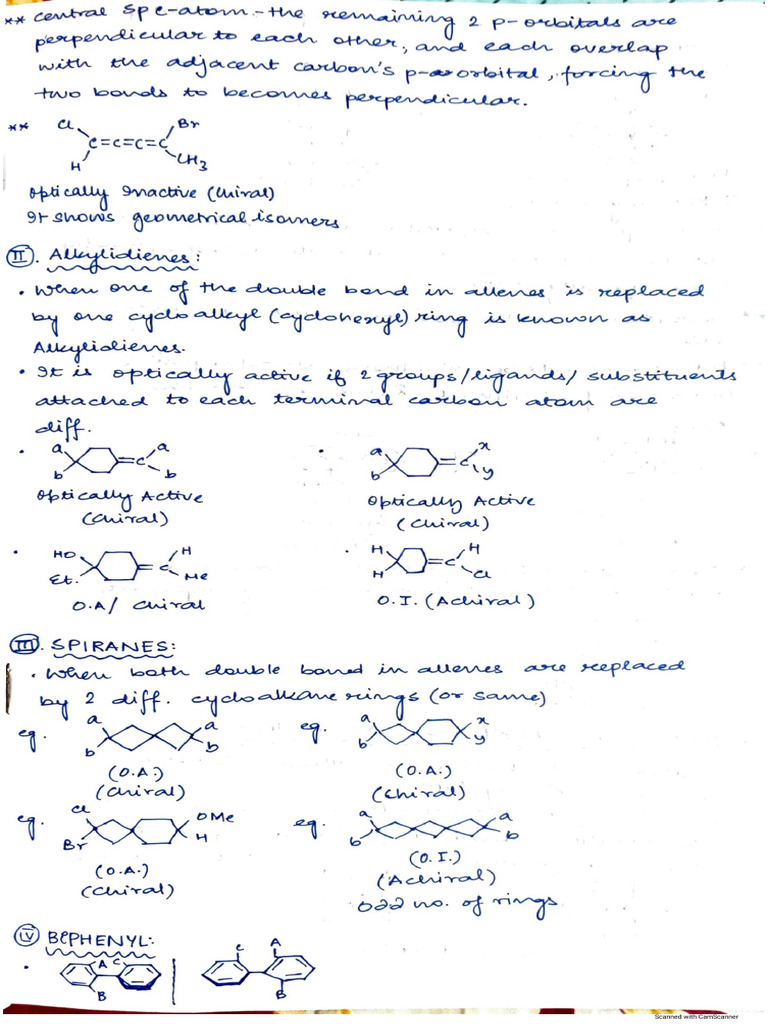 ** central sp2-atom - the remaining 2 p-orbitals are
perpendicular to each other, and each overlap
with the adjacent carbon's p-orbital, forcing the
two bonds to becomes perpendicular.
** Cl Br
C=C=C=C
H CH3
optically Inactive (Chiral)
It shows geometrical isomers
II. Alkylidienes:
• When one of the double bond in allenes is replaced
by one cycloalkyl (cyclohexyl) ring is known as
Alkylidienes.
• It is optically active if 2 groups/ligands/substituents
attached to each terminal carbon atom are
diff.
• a a • a x
=C =C
b b b y
Optically Active Optically Active
(Chiral) (Chiral)
• HO H • H H
=C =C
Et. Me H Cl
O.A/ Chiral O.I. (Achiral)
III. SPIRANES:
• When both double bond in allenes are replaced
by 2 diff. cycloalkane rings (or same)
eg. a a eg. a x
b b b y
(O.A.) (O.A.)
(Chiral) (Chiral)
eg. Cl OMe eg. a a
Br H b b
(O.A.) (O.I.)
(Chiral) (Achiral)
odd no. of rings
IV BIPHENYL:
• A C C A
B B
Scanned with CamScanner